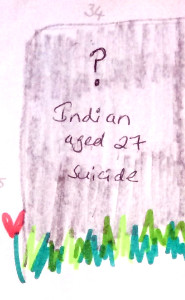 34
?
Indian
aged 27
suicide